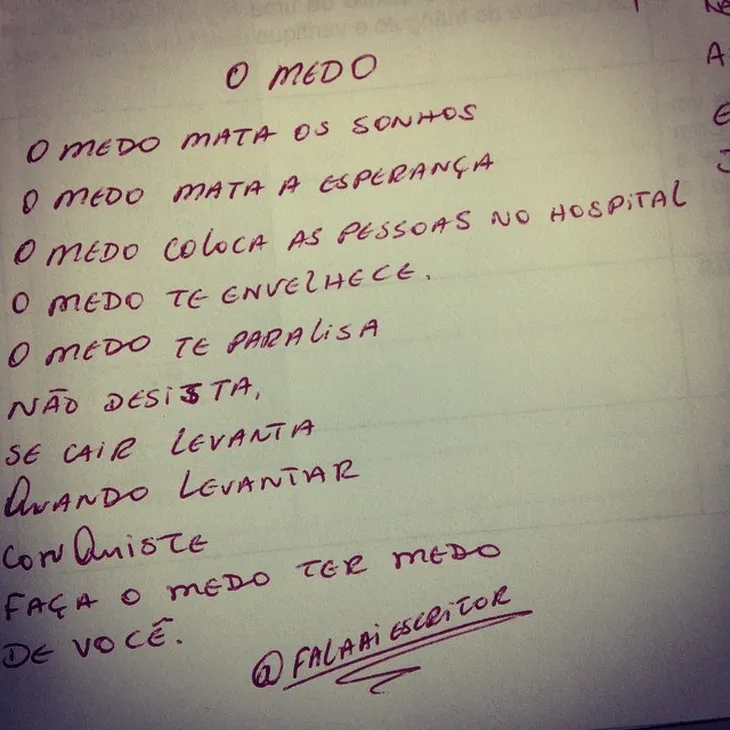 O MEDO
O MEDO MATA OS SONHOS
O MEDO MATA A ESPERANÇA
O MEDO COLOCA AS PESSOAS NO HOSPITAL
O MEDO TE ENVELHECE.
O MEDO TE PARALISA
NÃO DESISTA,
SE CAIR LEVANTA
QUANDO LEVANTAR
CONQUISTE
FAÇA O MEDO TER MEDO
DE VOCÊ.
@FALAAIESCRITOR